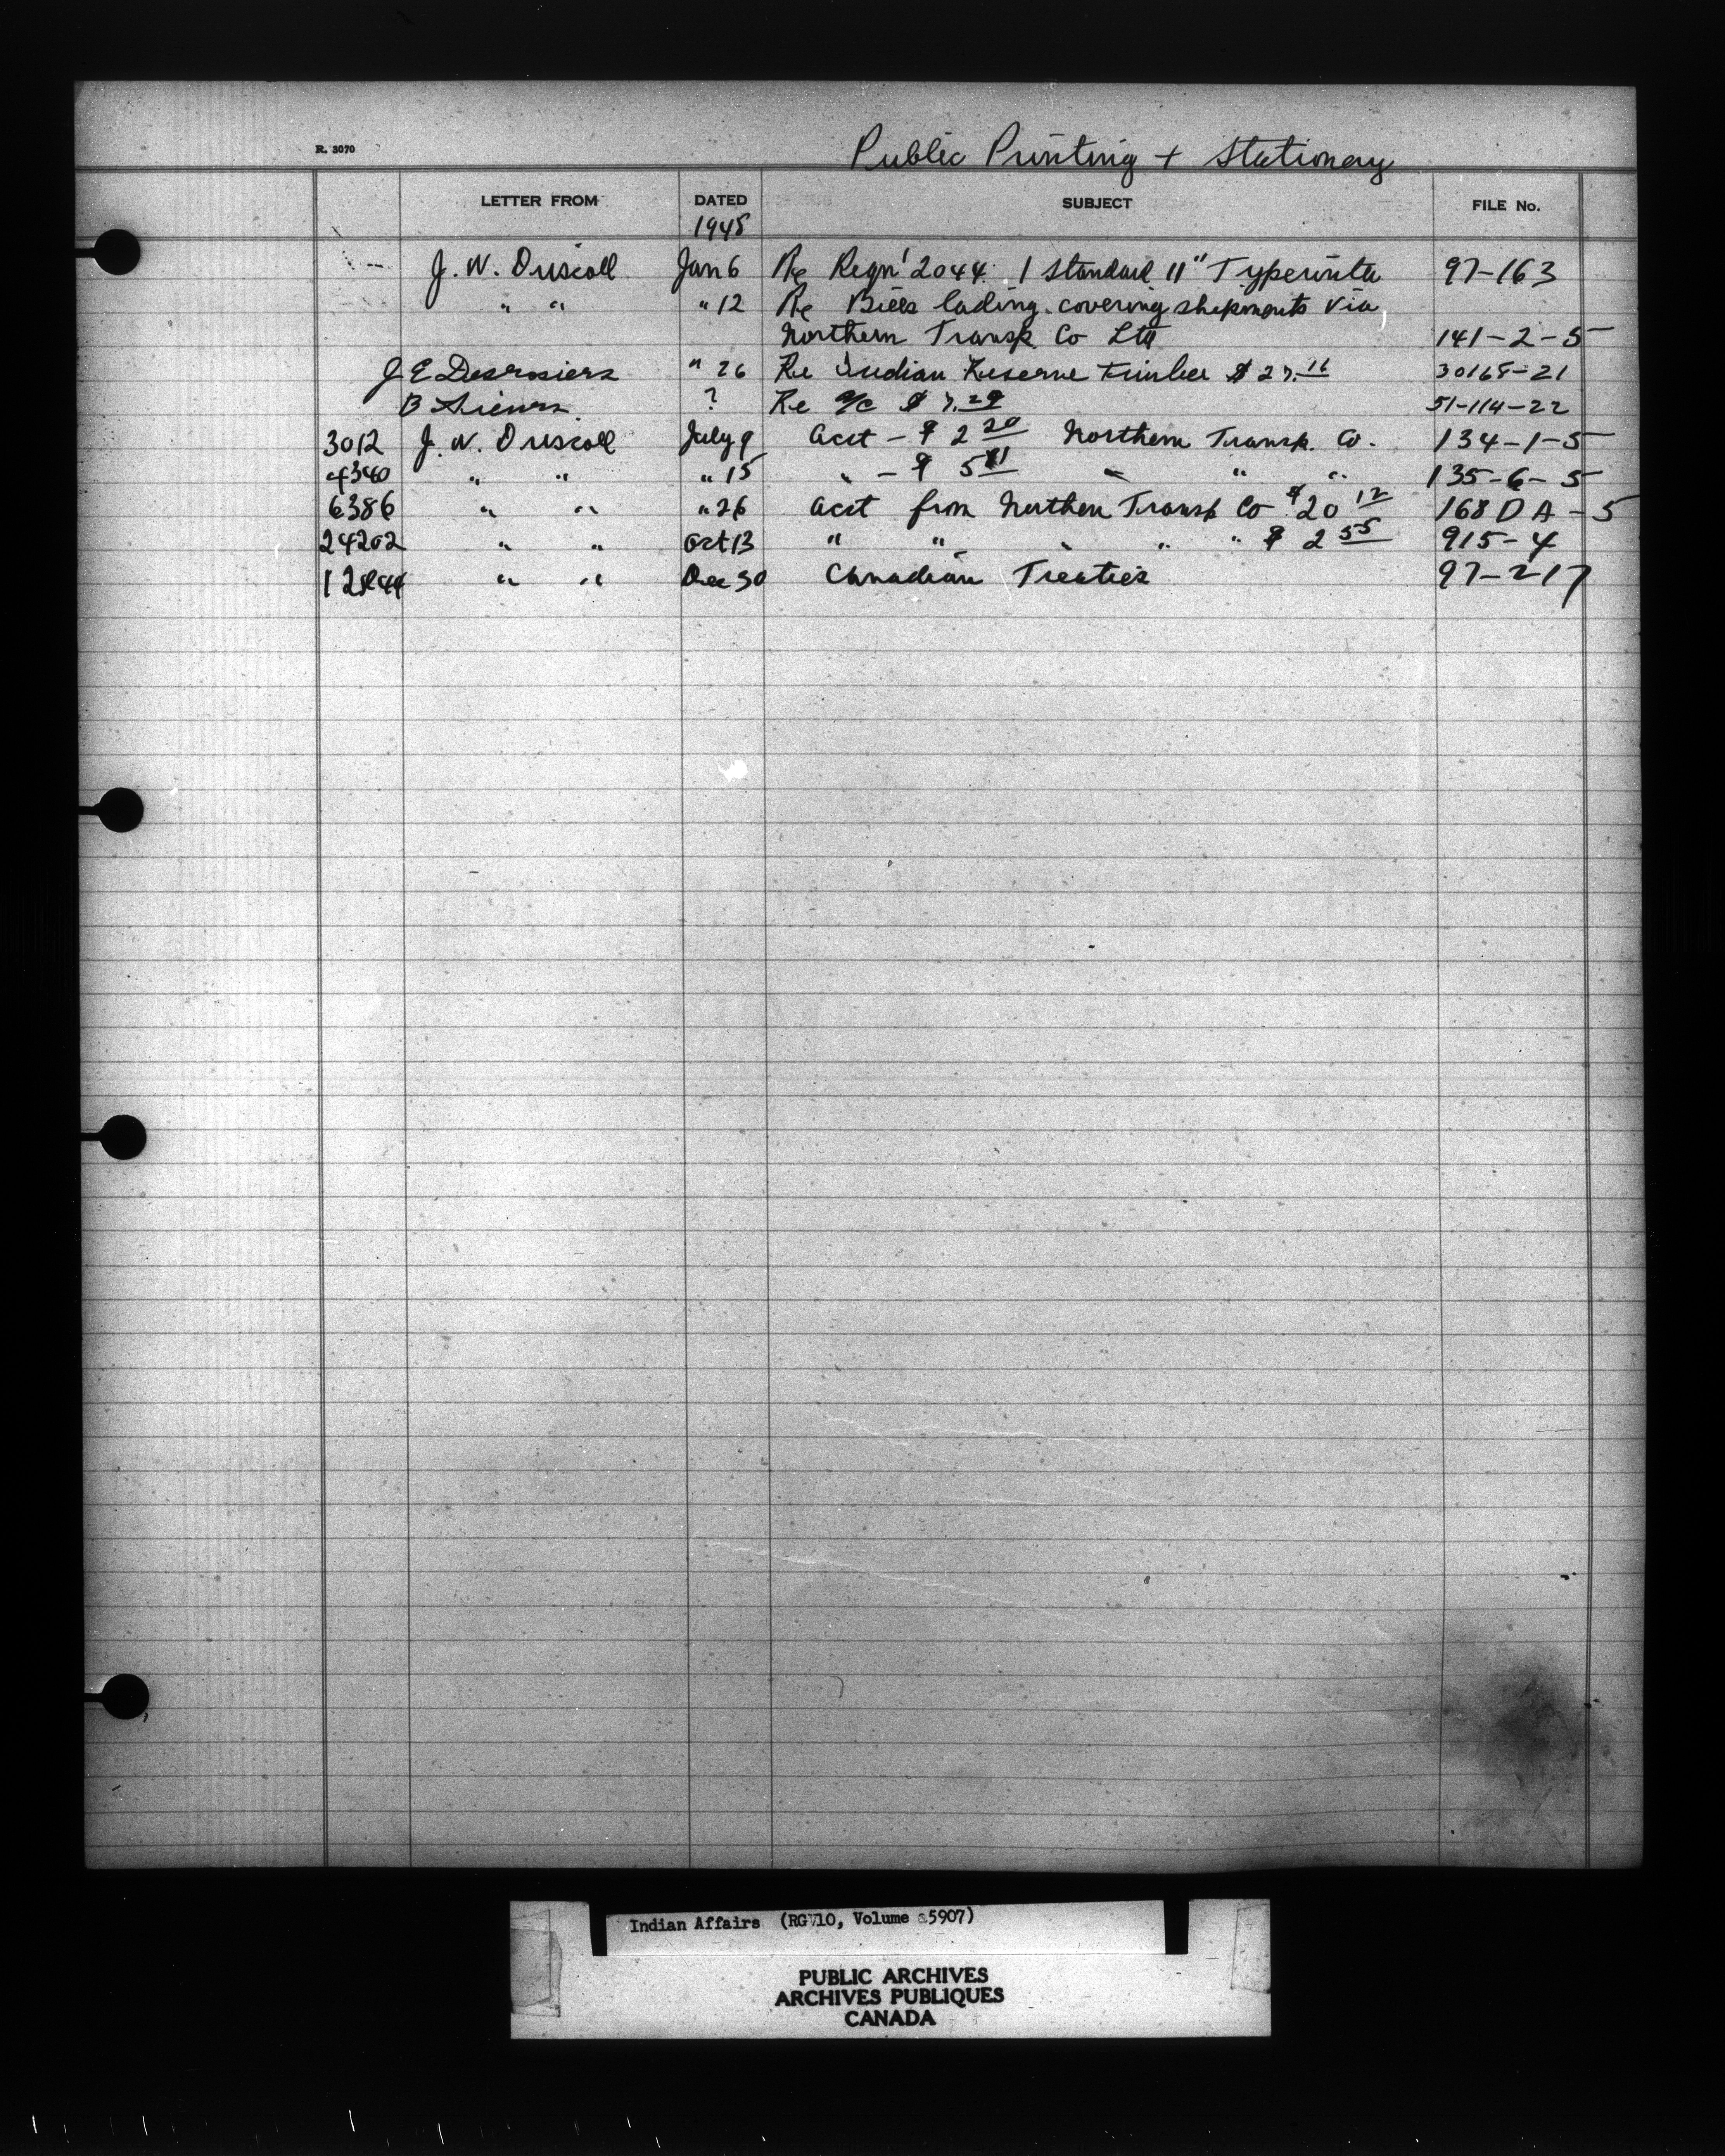 R. 3070
Public Printing + Stationery
LETTER FROM DATED SUBJECT FILE No.
1945
J. W. Driscoll Jan 6 Re Reqn' 2044. 1 Standard 11" Typewriter 97-163
" " " 12 Re Bills lading covering shipments via
Northern Transp. Co Ltd 141-2-5
J E Desrosiers " 26 Re Indian Reserve Timber $ 27.16 30165-21
B ? Re a/c $ 7.29 51-114-22
3012 J. W. Driscoll July 9 Acct - $ 2 20 Northern Transp. Co. 134-1-5
4340 " " " 15 " - $ 5 " " " 135-6-5
6386 " " " 26 Acct from Northern Transp Co $20 12 168 D A - 5
24202 " " Oct 13 " " " " " $ 2 55 915-4
" " Dec 30 Canadian Treaties 97-217
Indian Affairs (RG 10, Volume 5907)
PUBLIC ARCHIVES
ARCHIVES PUBLIQUES
CANADA